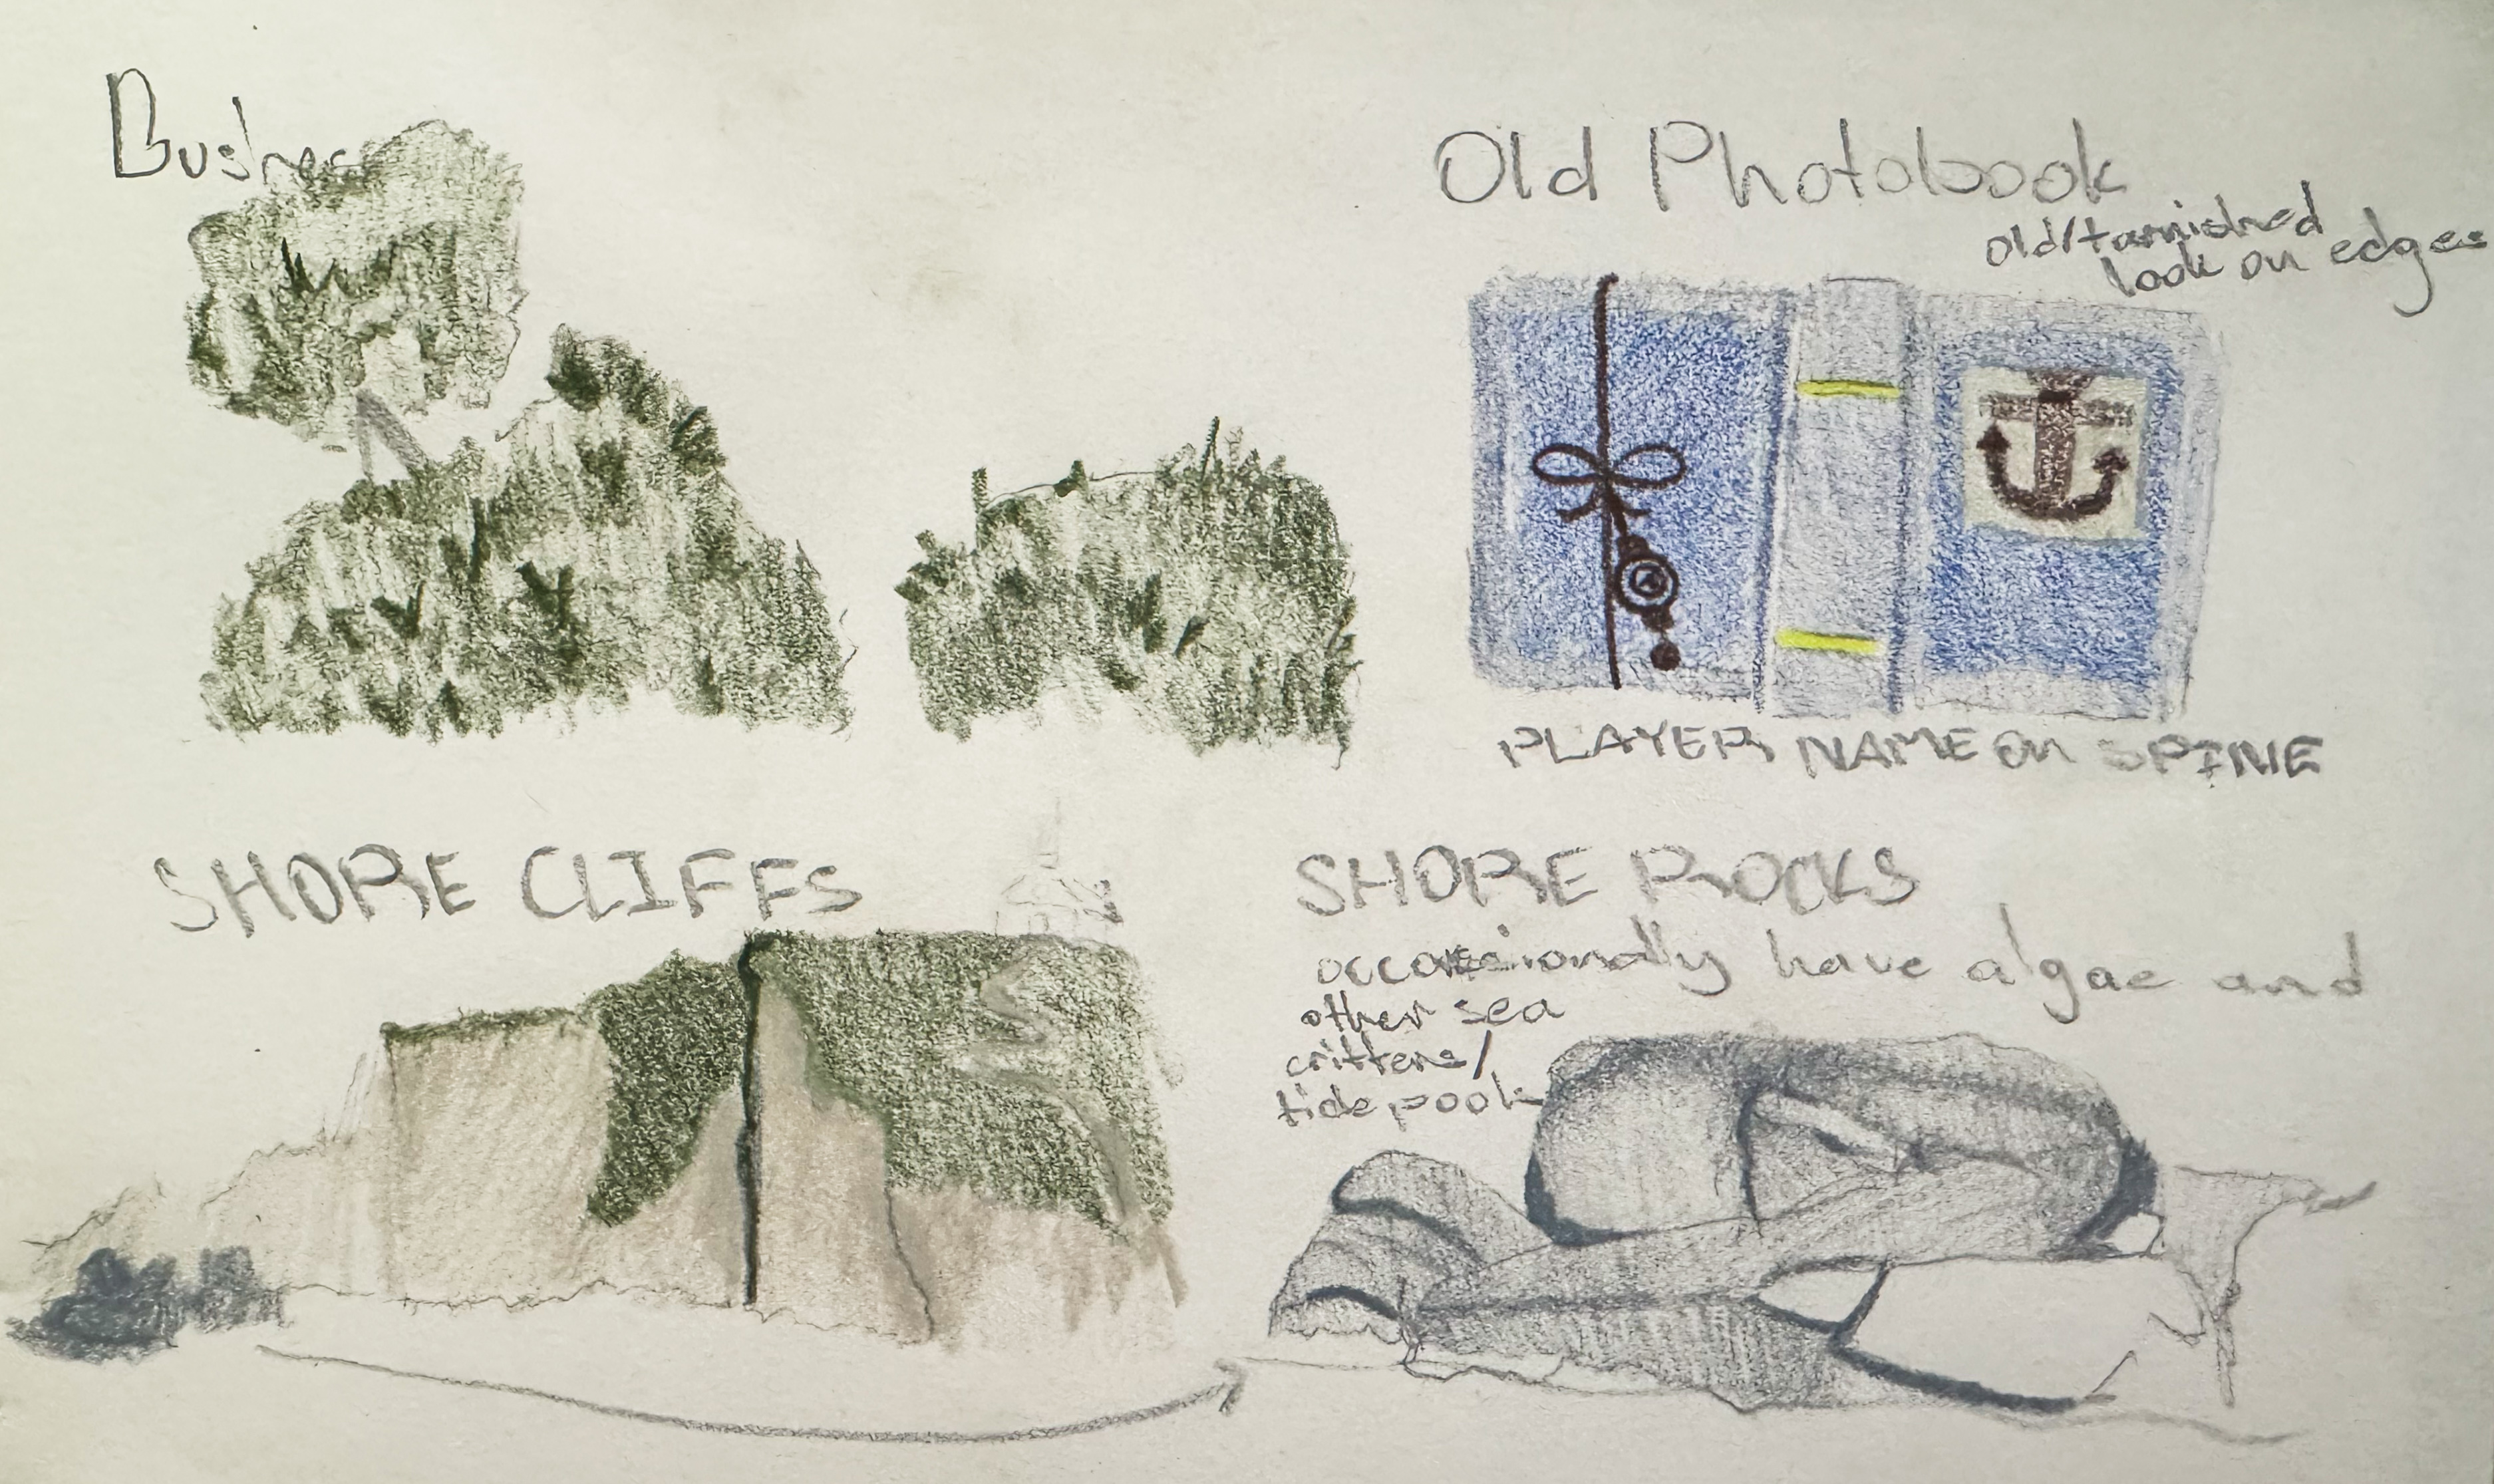 Bushes
Old Photobook
old/tarnished
look on edges
PLAYER NAME on SPINE
SHORE CLIFFS
SHORE ROCKS
occasionally have algae and
other sea
critters/
tide pools